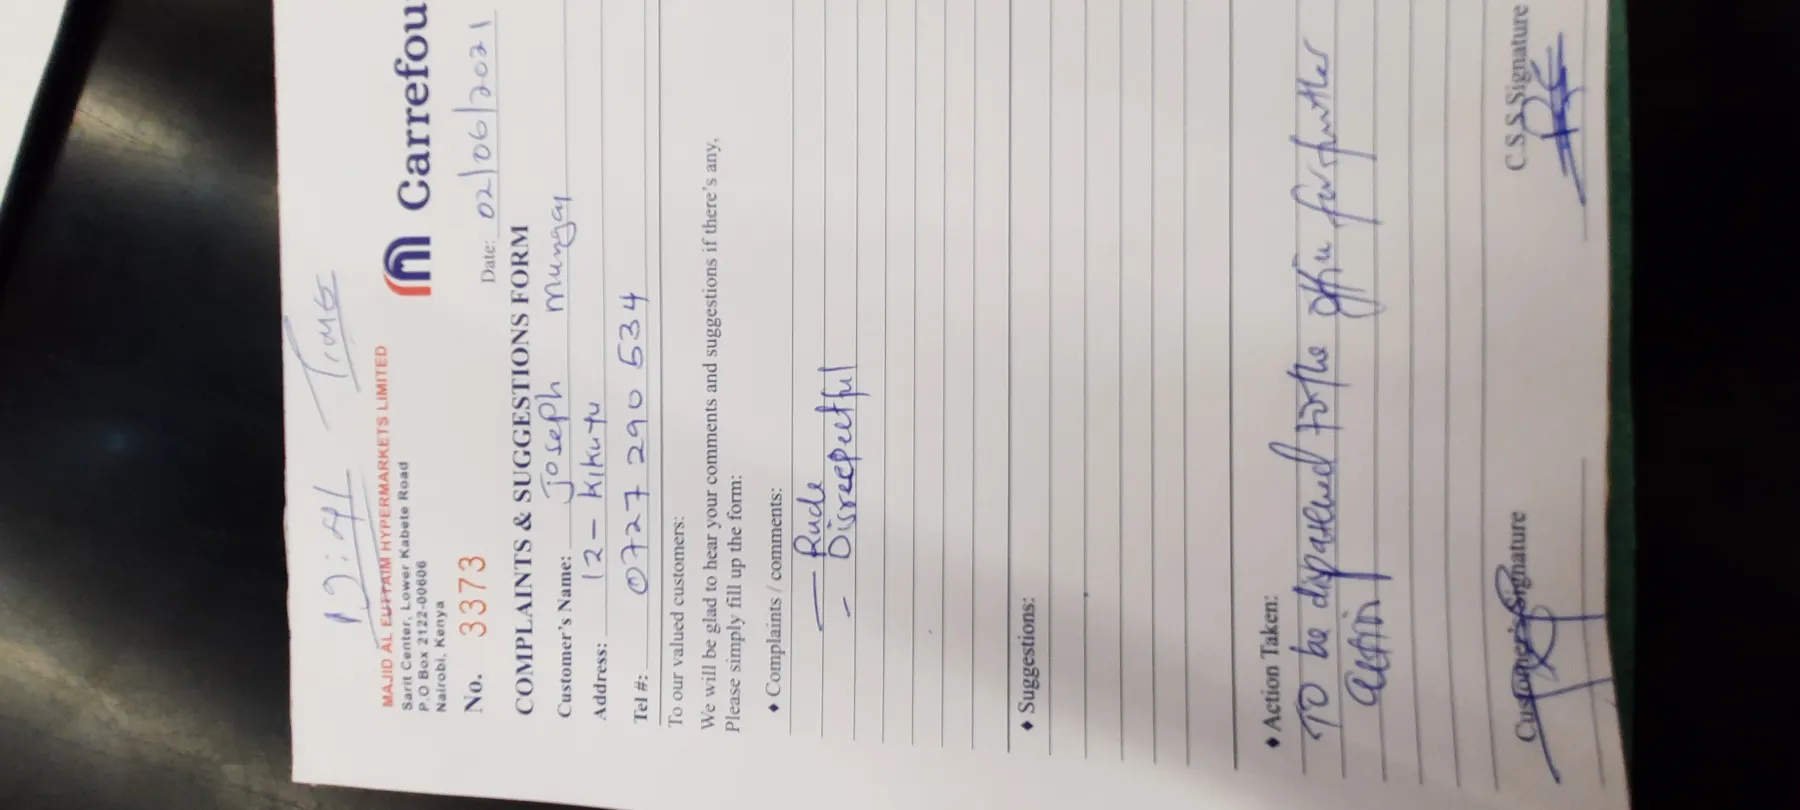 19:41 Time
MAJID AL FUTTAIM HYPERMARKETS LIMITED
Sarit Center, Lower Kabete Road
P.O Box 2122-00606
Nairobi, Kenya
Carrefou
No. 3373
Date: 02/06/2021
COMPLAINTS & SUGGESTIONS FORM
Customer's Name: Joseph Mungai
Address: 12 - Kikuyu
Tel #: 0727 290 534
To our valued customers:
We will be glad to hear your comments and suggestions if there's any,
Please simply fill up the form:
♦ Complaints / comments:
— Rude
- Disrecpectful
♦ Suggestions:
♦ Action Taken:
To be dispatched to the office for further
action
Customer's Signature C.S.S Signature